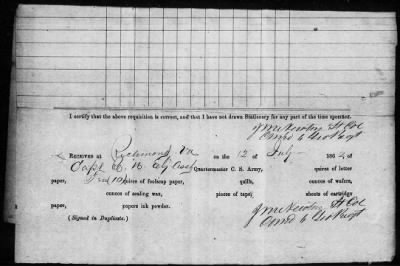 I certify that the above requisition is correct, and that I have not drawn Stationery for any part of the time specified.
Jn M Newton Lt Col
Comd 6 Geo Regt
Received at Richmond Va on the 12 of July 1862, of
Capt Quartermaster C. S. Army, quires of letter
paper, Ten (10) quires of foolscap paper, quills, ounces of wafers,
ounces of sealing wax, pieces of tape, sheets of cartridge
paper, papers ink powder.
Jn M Newton Lt Col
(Signed in Duplicate.) Comd 6 Geo Regt